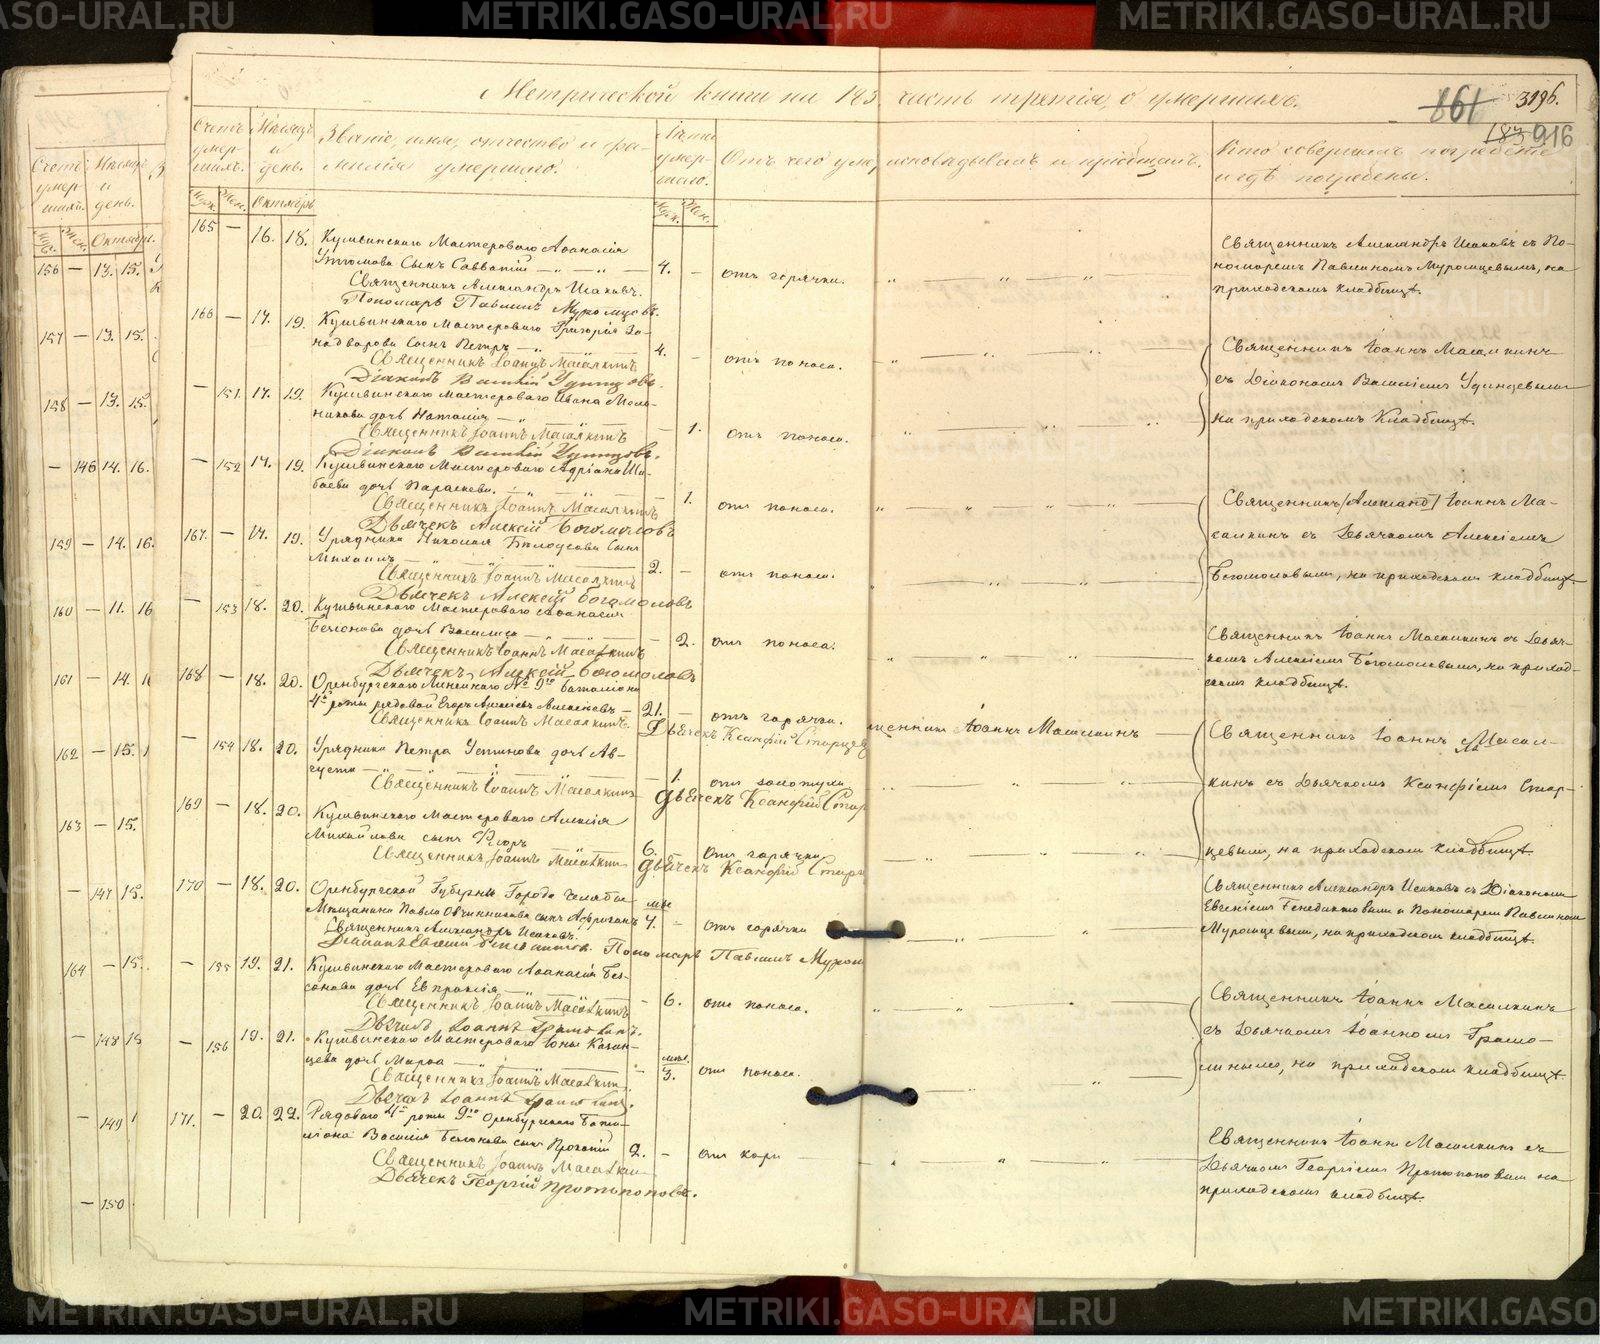 METRIKI.GASO-URAL.RU
METRIKI.GASO-URAL.RU
Метрической книги на 185 часть третія, о умершихъ.
861
319б.
916
Счетъ умершихъ.
Мѣсяцъ и день.
Званіе, имя, отчество и фамилія умершаго.
Лѣта умершаго.
Отъ чего умер
исповѣдывалъ и пріобщалъ.
Кто совершалъ погребеніе
и гдѣ погребены.
Муж. Жен. Октябрь
Муж. Жен.
165 — 16. 18. Кушвинскаго Мастероваго Аѳанасія
Устюмова Сынъ Савватій — 4. — отъ горячки.
Священникъ Александръ Исаковъ.
Пономарь Павлинъ Муромцовъ.
Священникъ Александръ Исаковъ съ По-
номаремъ Павлиномъ Муромцевымъ, на
приходскомъ кладбищѣ.
166 — 17. 19. Кушвинскаго Мастероваго Григорія За-
надворова Сынъ Петръ — 4. — отъ поноса.
Священникъ Іоаннъ Масалкинъ
Діаконъ Василій Удинцовъ.
Священникъ Іоаннъ Масалкинъ
съ Діакономъ Василіемъ Удинцевымъ
на приходскомъ Кладбищѣ.
— 151 17. 19. Кушвинскаго мастероваго Ивана Мель-
никова дочь Наталія — 1. отъ поноса.
Священникъ Іоаннъ Масалкинъ
Діаконъ Василій Удинцовъ.
— 152 17. 19. Кушвинскаго Мастероваго Адріана Ша-
баева дочь Параскева. — 1. отъ поноса.
Священникъ Іоаннъ Масалкинъ
Дьячекъ Алексій Богомоловъ
Священникъ /Александ/ Іоаннъ Ма-
салкинъ съ Дьячкомъ Алексіемъ
Богомоловымъ, на приходскомъ кладбищѣ
167. — 17. 19. Урядника Николая Бѣлоусова Сынъ
Михаилъ — 2. — отъ поноса.
Священникъ Іоаннъ Масалкинъ
Дьячекъ Алексій Богомоловъ
— 153 18. 20. Кушвинскаго Мастероваго Аѳанасія
дочь Василиса — 2. отъ поноса.
Священникъ Іоаннъ Масалкинъ
Дьячекъ Алексій Богомоловъ
Священникъ Іоаннъ Масалкинъ съ Дьяч-
комъ Алексіемъ Богомоловымъ, на приход-
скомъ кладбищѣ.
168 — 18. 20. Оренбургскаго Линейнаго № 9го баталіона
4й роты рядовой Егоръ Алексѣевъ — 21. — отъ горячки.
Священникъ Іоаннъ Масалкинъ.
Дьячекъ Ксанфій Старцев
щенникъ Іоаннъ Масалкинъ
Священникъ Іоаннъ Масал-
кинъ съ Дьячкомъ Ксанфіемъ Стар-
цевымъ, на приходскомъ кладбищѣ.
— 154 18. 20. Урядника Петра Устинова дочь Ав-
густа — 1. отъ золотухи
Священникъ Іоаннъ Масалкинъ
Дьячекъ Ксанфій Стар
169 — 18. 20. Кушвинскаго Мастероваго Алексія
Михайлова сынъ Ѳеодоръ 6. — отъ горячки
Священникъ Іоаннъ Масалкинъ
Дьячекъ Ксанфій Стар
170 — 18. 20. Оренбургской Губерніи Города Челябы
Мѣщанина Павла Овчинникова сынъ Африканъ 4. — отъ горячки
Священникъ Александръ Исаковъ.
Діаконъ Евгеній Бенедиктов. Пономарь Павлинъ Муром
Священникъ Александръ Исаковъ съ Діакономъ
Евгеніемъ Бенедиктовымъ и Пономаремъ Павлиномъ
Муромцевымъ, на приходскомъ кладбищѣ.
— 155 19. 21. Кушвинскаго Мастероваго Аѳанасія Без-
сонова дочь Евпраксія — 6. отъ поноса.
Священникъ Іоаннъ Масалкинъ
Дьячекъ Іоаннъ Грамолинъ.
Священникъ Іоаннъ Масалкинъ
съ Дьячкомъ Іоанномъ Грамо-
линымъ, на приходскомъ кладбищѣ.
— 156 19. 21. Кушвинскаго Мастероваго Іоны Казан-
цева дочь Марѳа — мѣс. 3. отъ поноса.
Священникъ Іоаннъ Масалкинъ.
Дьячекъ Іоаннъ Грамолинъ.
171. — 20. 22. Рядоваго 4й роты 9го Оренбургскаго Бата-
ліона Василія сынъ Прокопій 2. — отъ кори
Священникъ Іоаннъ Масалкинъ
Дьячекъ Георгій Протопоповъ.
Священникъ Іоаннъ Масалкинъ съ
Дьячкомъ Георгіемъ Протопоповымъ на
приходскомъ кладбищѣ.
Счетъ умершихъ.
Мѣсяцъ и день.
Муж. Жен. Октябрь.
156 — 13. 15.
157 — 13. 15.
158 — 13. 15.
— 146 14. 16.
159 — 14. 16.
160 — 11. 16
161 — 14. 1
162 — 15. 1
163 — 15.
— 147 15.
164 — 15.
— 148 15
— 149 1
— 150
METRIKI.GASO-URAL.RU
METRIKI.GASO-URAL.RU
METRIKI.GASO